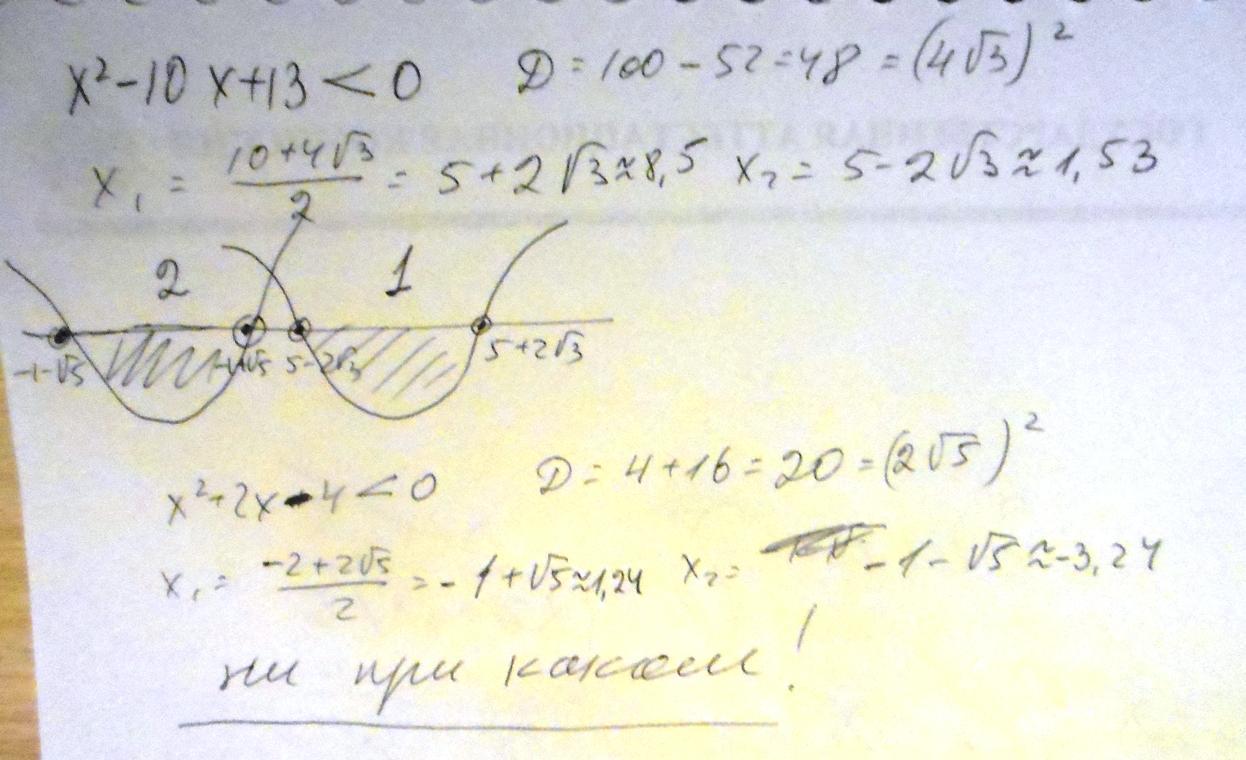 x² - 10x + 13 < 0 D = 100 - 52 = 48 = (4√3)²
x₁ = (10+4√3)/2 = 5 + 2√3 ≈ 8,5 x₂ = 5 - 2√3 ≈ 1,53
2 1
-1-√5 -1+√5 5-2√3 5+2√3
x² + 2x - 4 < 0 D = 4 + 16 = 20 = (2√5)²
x₁ = (-2+2√5)/2 = -1 + √5 ≈ 1,24 x₂ = -1 - √5 ≈ -3,24
ни при каком!